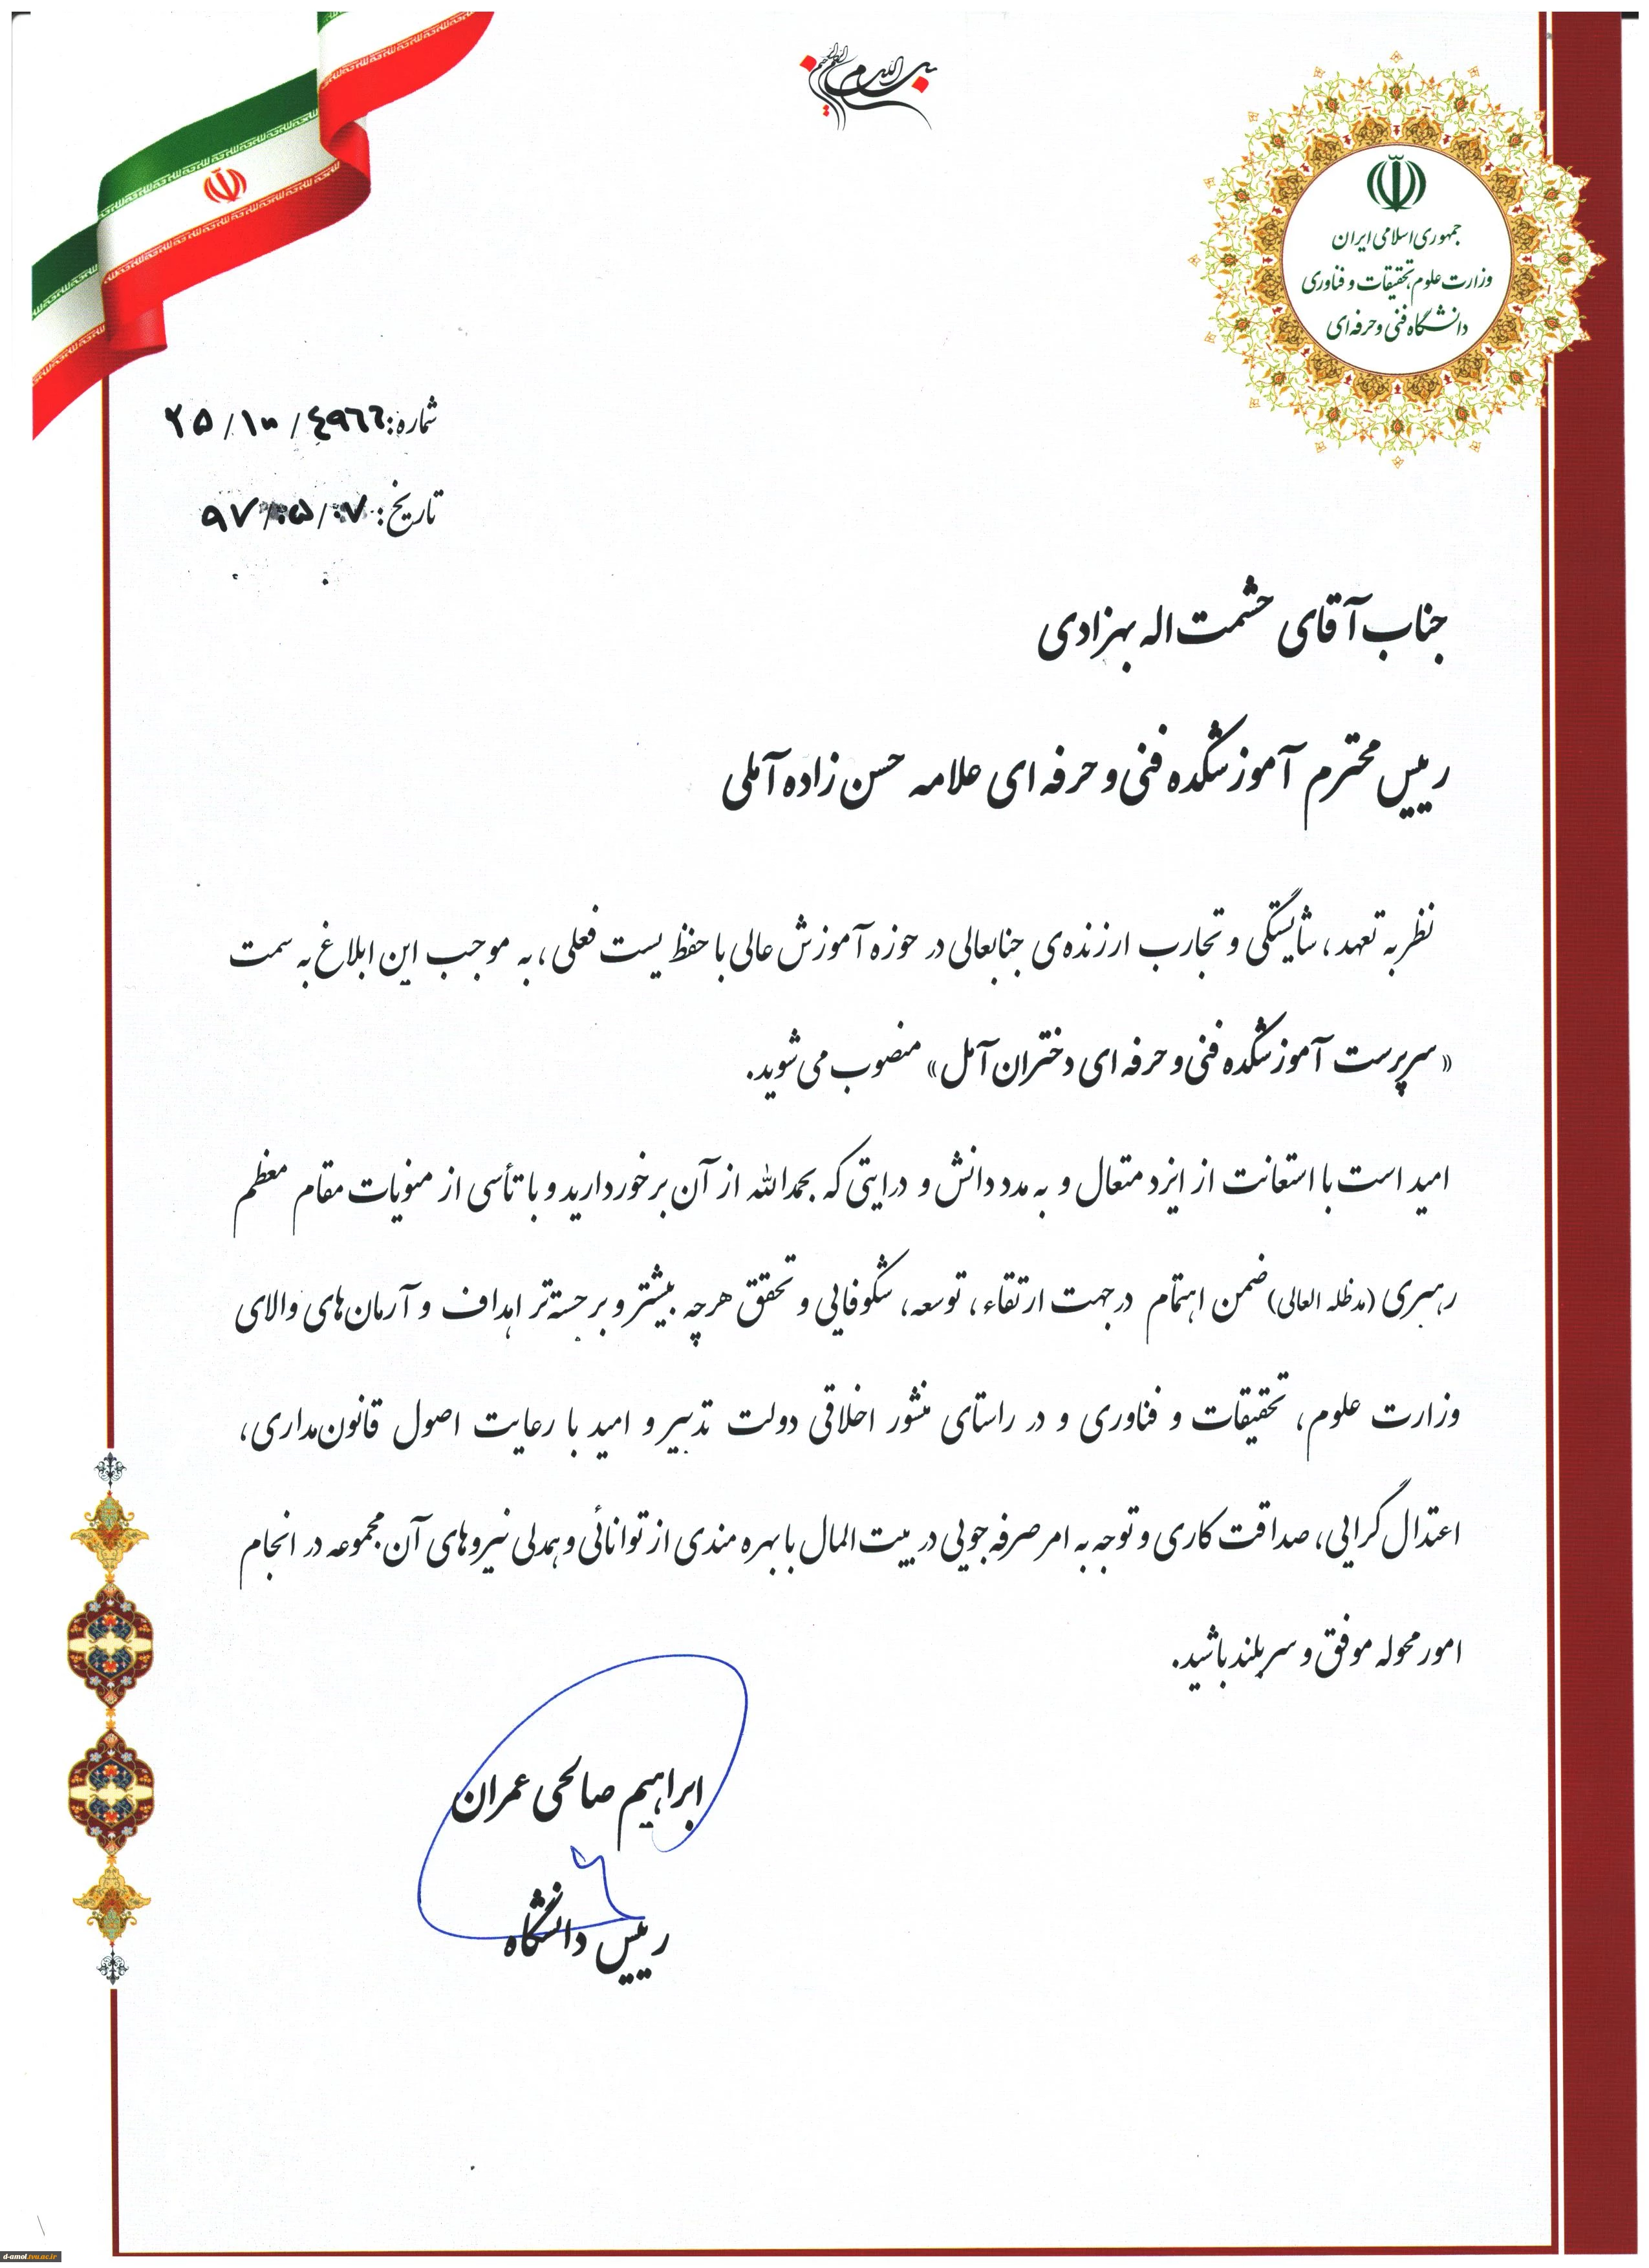 بسم الله الرحمن الرحیم
جمهوری اسلامی ایران
وزارت علوم، تحقیقات و فناوری
دانشگاه فنی و حرفه‌ای
شماره: ۲۵/۱۰۰/٤٩٦٦
تاریخ: ۹۷/۰۵/۰۷
جناب آقای حشمت اله بهزادی
رییس محترم آموزشکده فنی و حرفه ای علامه حسن زاده آملی
نظر به تعهد، شایستگی و تجارب ارزنده‌ی جنابعالی در حوزه آموزش عالی با حفظ پست فعلی، به موجب این ابلاغ به سمت
«سرپرست آموزشکده فنی و حرفه ای دختران آمل» منصوب می‌شوید.
امید است با استعانت از ایزد متعال و به مدد دانش و درایتی که بحمدالله از آن برخوردارید و با تأسی از منویات مقام معظم
رهبری (مدظله العالی) ضمن اهتمام در جهت ارتقاء، توسعه، شکوفایی و تحقق هرچه بیشتر و برجسته‌تر اهداف و آرمان‌های والای
وزارت علوم، تحقیقات و فناوری و در راستای منشور اخلاقی دولت تدبیر و امید با رعایت اصول قانون‌مداری،
اعتدال گرایی، صداقت کاری و توجه به امر صرفه جویی در بیت المال با بهره مندی از توانائی و همدلی نیروهای آن مجموعه در انجام
امور محوله موفق و سربلند باشید.
ابراهیم صالحی عمران
رییس دانشگاه
d-amol.tvu.ac.ir